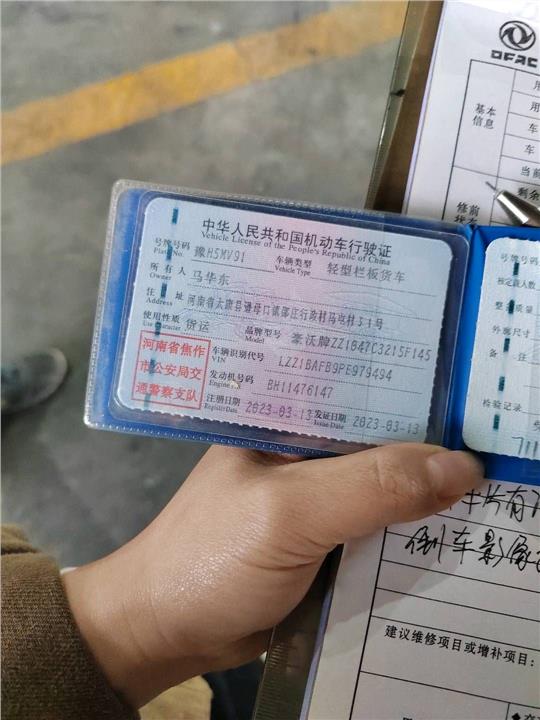 中华人民共和国机动车行驶证
Vehicle License of the People's Republic of China
号牌号码 豫H5MV91 车辆类型 轻型栏板货车
Plate No. Vehicle Type
所有人 马华东
Owner
住址 河南省太康县逊母口镇邵庄行政村马屯村31号
Address
使用性质 货运 品牌型号 豪沃牌ZZ1047C3215F145
Use Character Model
河南省焦作
市公安局交
通警察支队
车辆识别代号 LZZ1BAFB9PE979494
VIN
发动机号码 BH11476147
Engine No.
注册日期 2023-03-13 发证日期 2023-03-13
Register Date Issue Date
号牌号码
核定载人数
整备质量
外廓尺寸
备注
检验记录
DFAC
基本
信息
当前
剩余
修前
倒车影像
建议维修项目或增补项目：